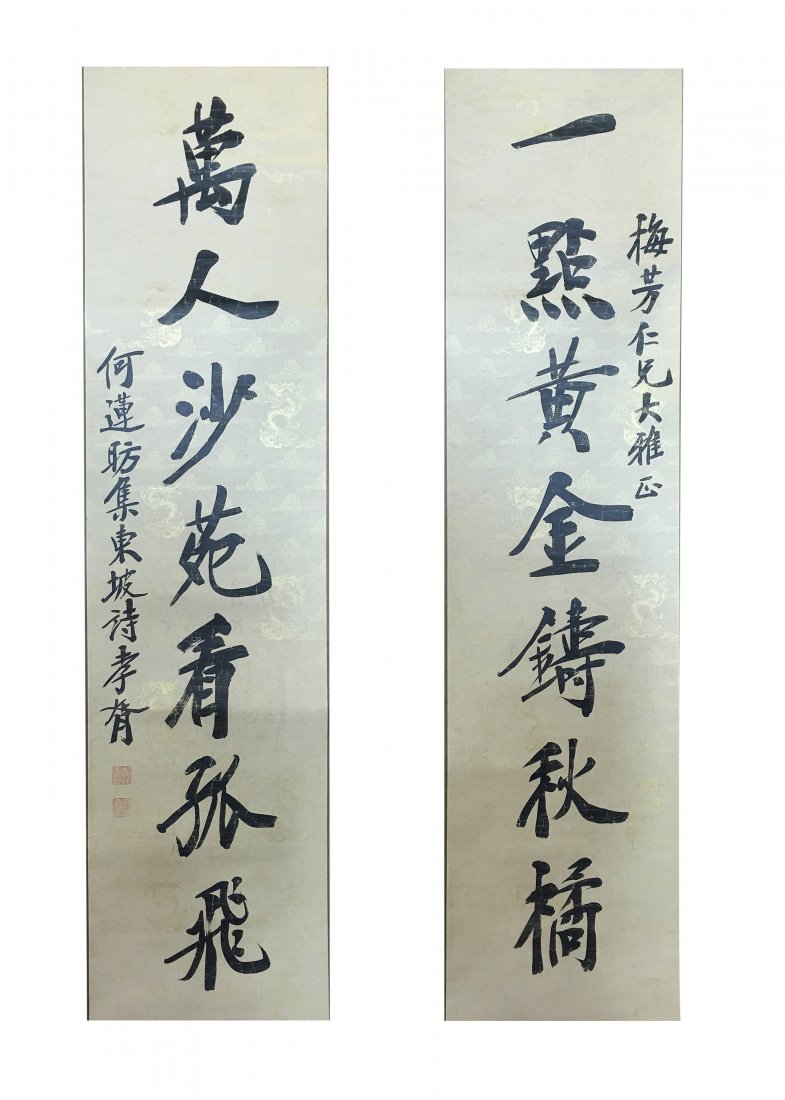 梅芳仁兄大雅正
一點黃金鑄秋橘
萬人沙苑看孤飛
何蓮舫集東坡詩孝胥